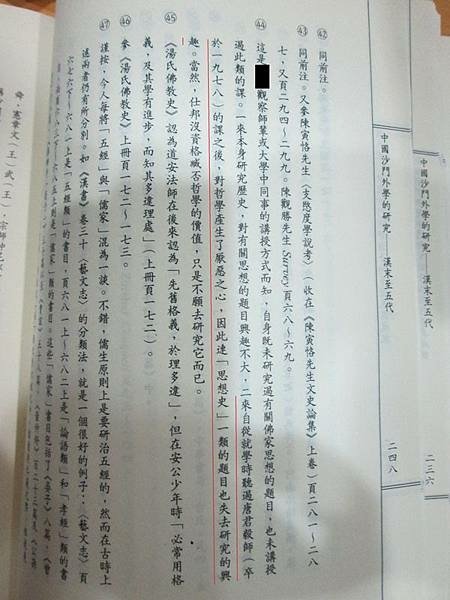 中國沙門外學的研究——漢末至五代 二三六
中國沙門外學的研究——漢末至五代 二四八
㊷ 同前注。
㊸ 同前注。又參陳寅恪先生〈支愍度學說考〉(收在《陳寅恪先生文史論集》上卷)頁二八一~二八
七,又頁二九四~二九九。陳觀勝先生 Survey 頁六八~六九。
㊹ 這是觀察師輩或大學中同事的講授方式而知,自身既未研究過有關佛家思想的題目,也未講授
過此類的課。一來本身研究歷史,對有關思想的題目興趣不大,二來自從就學時聽過唐君毅師(卒
於一九七八)的課之後,對哲學產生了厭惡之心,因此連「思想史」一類的題目也失去研究的興
趣。當然,仕邦沒資格臧否哲學的價值,只是不願去研究它而已。
㊺ 《湯氏佛教史》認為道安法師在後來認為「先舊格義,於理多違」,但在安公少年時「必常用格
義,及其學有進步,而知其多違理處」(上冊頁一七二)。
㊻ 參《湯氏佛教史》上冊頁一七二~一七三。
㊼ 謹按,今人每將「五經」與「儒家」混為一談。不錯,儒生原則上是要研治五經的,然而在古時上
述兩者仍有所分別。如《漢書》卷三十〈藝文志〉的分類法,就是一個很好的例子:〈藝文志〉頁
六七六下~六八一上是「五經類」的書目,頁六八一上~六八二上是「論語類」和「孝經」類的書